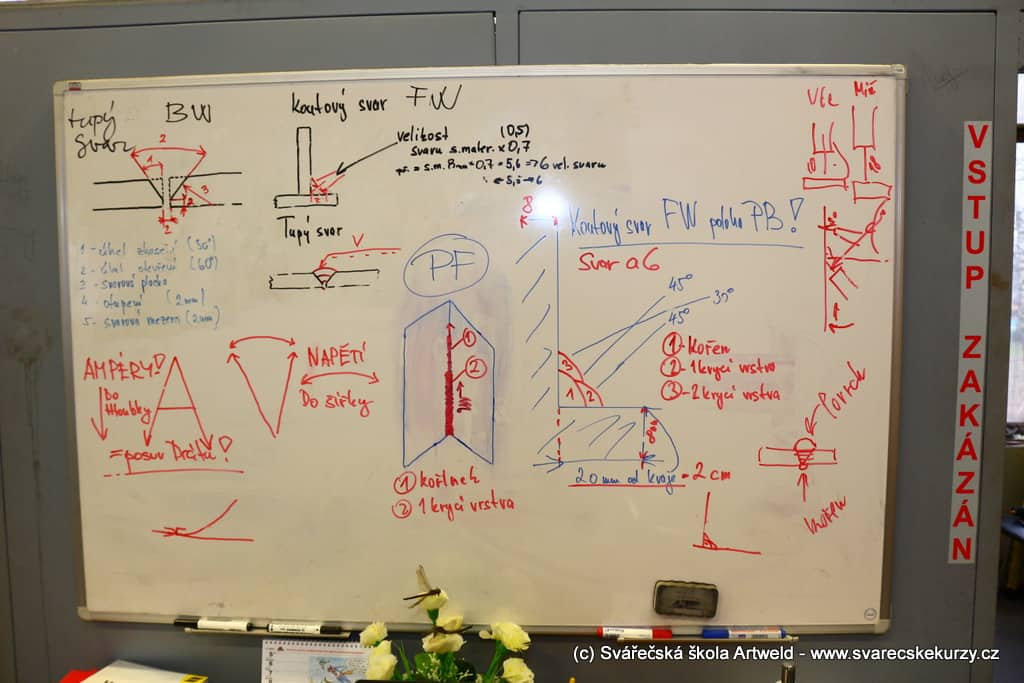 tupý svar
BW
1
2
3
2
2
1 - úhel zkosení (30°)
2 - úhel otevření (60°)
3 - svarová plocha
4 - otupení (2mm)
5 - svarová mezera (2mm)
Koutový svar FW
velikost (0,5)
svaru s.mater. x 0,7
0,7 = 5,6 => 6 vel. svaru
Tupý svar
V
AMPÉRY!
A
Do
Hloubky
= posuv Drátu!
V
NAPĚTÍ
Do šířky
PF
1
2
① kořínek
② 1 krycí vrstva
8
Koutový svar FW poloha PB!
Svar a6
45°
30°
45°
3
1
2
①-Kořen
②-1 krycí vrstva
③-2 krycí vrstva
8mm
20 mm od kraje = 2 cm
Povrch
Kořen
VSTUP ZAKÁZÁN
(c) Svářečská škola Artweld - www.svarecskekurzy.cz